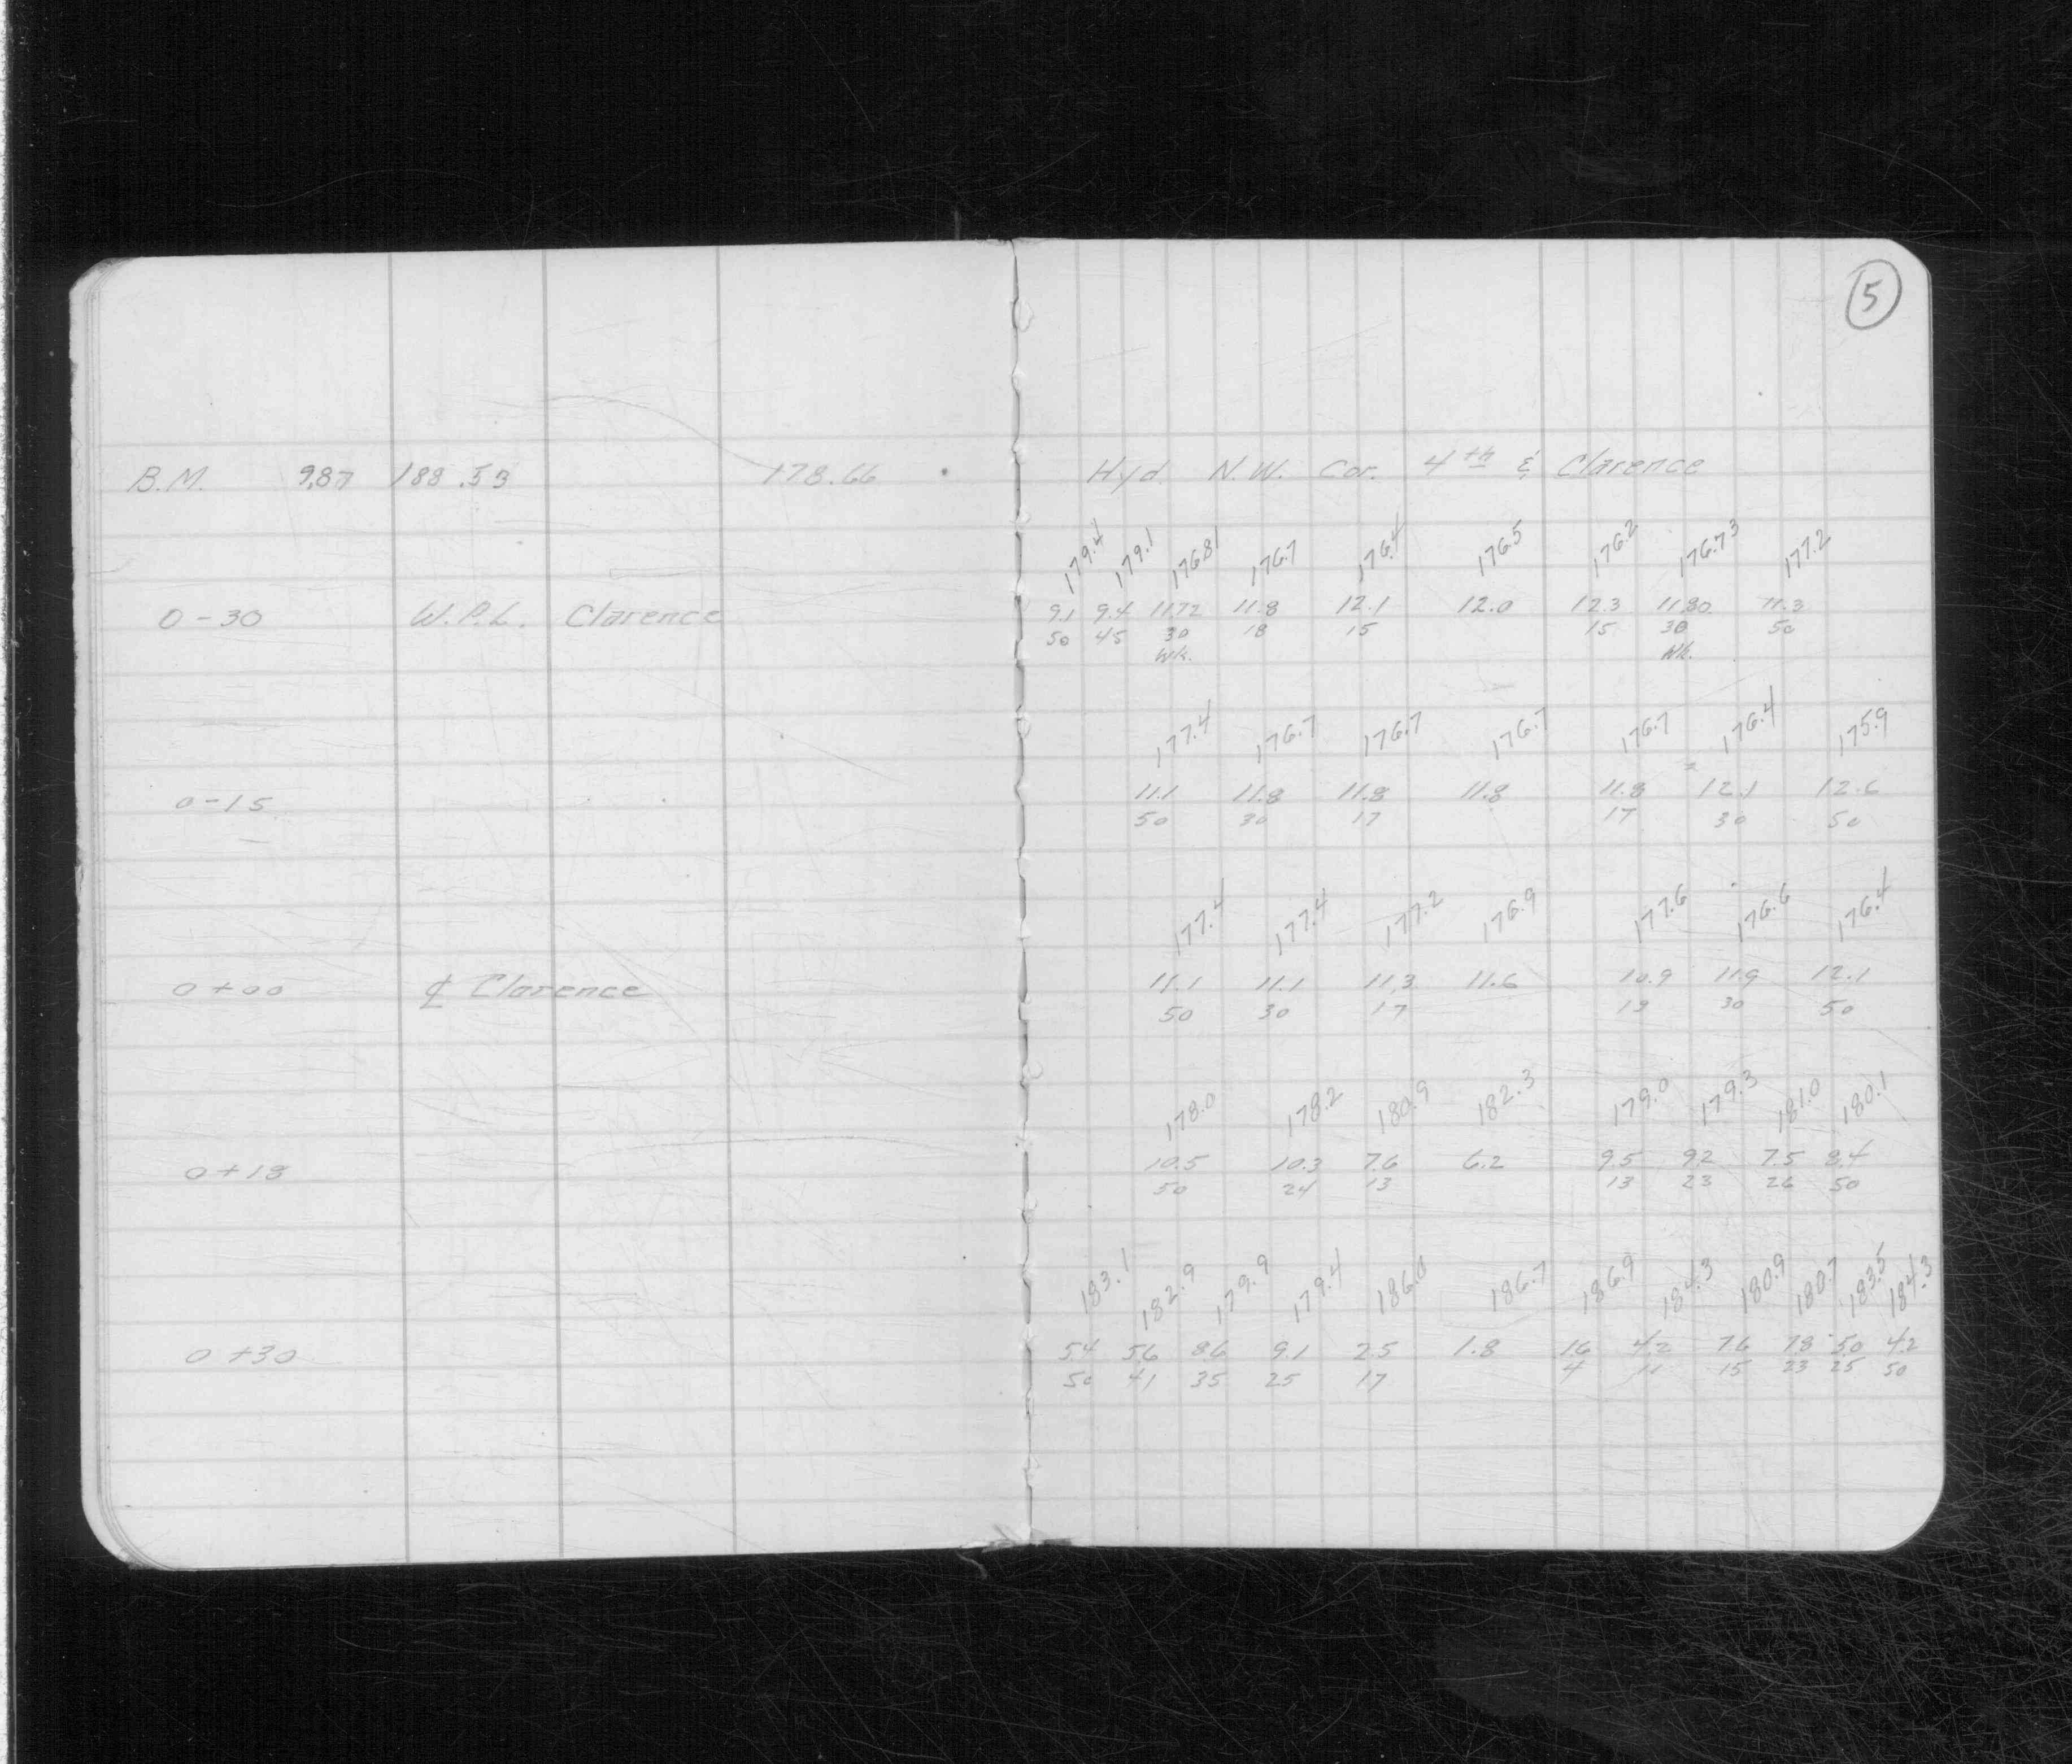 5
B.M. 9.87 188.53 178.66 Hyd. N.W. Cor. 4th & Clarence
179.4 179.1 176.81 176.7 176.4 176.5 176.2 176.73 177.2
0-30 W.P.L. Clarence 9.1 9.4 11.72 11.8 12.1 12.0 12.3 11.80 11.3
50 45 30 18 15 15 30 50
Wk. Wk.
177.4 176.7 176.7 176.7 176.7 176.4 175.9
0-15 11.1 11.8 11.8 11.8 11.8 12.1 12.6
50 30 17 17 30 50
177.4 177.4 177.2 176.9 177.6 176.6 176.4
0+00 ℄ Clarence 11.1 11.1 11.3 11.6 10.9 11.9 12.1
50 30 17 19 30 50
178.0 178.2 180.9 182.3 179.0 179.3 181.0 180.1
0+18 10.5 10.3 7.6 6.2 9.5 9.2 7.5 8.4
50 24 13 13 23 26 50
183.1 182.9 179.9 179.4 186.0 186.7 186.9 184.3 180.9 180.7 183.5 184.3
0+30 5.4 5.6 8.6 9.1 2.5 1.8 1.6 4.2 7.6 7.8 5.0 4.2
50 41 35 25 17 4 11 15 23 25 50